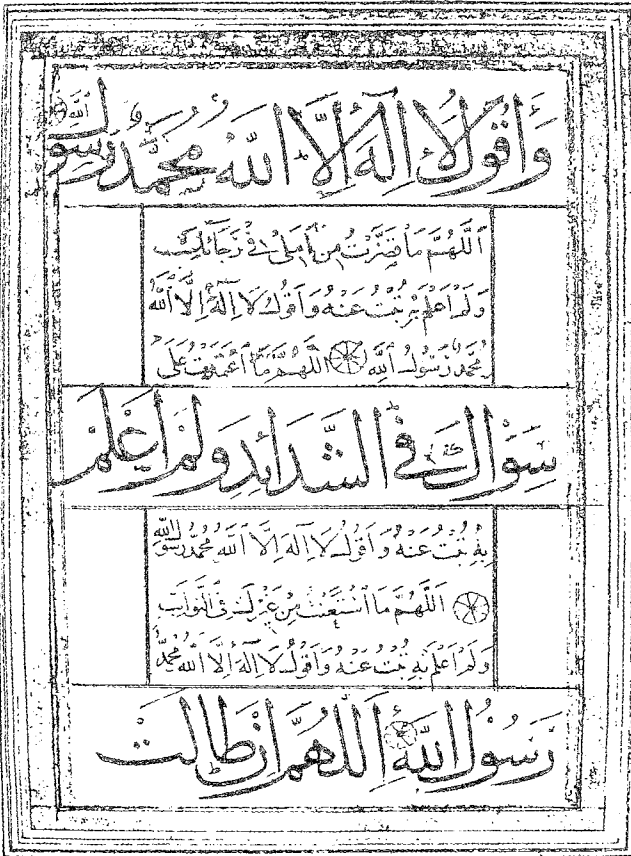 وَأَقُولُ لَا إِلَهَ إِلَّا اللهُ مُحَمَّدٌ رَسُولُ اللهِ
اَللَّهُمَّ مَا قَصَّرْتُ مِنْ أَمَلِى فِى رَجَائِكَ
وَلَمْ أَعْلَمْ بِهِ تُبْتُ عَنْهُ وَأَقُولُ لَا إِلَهَ إِلَّا اللهُ
مُحَمَّدٌ رَسُولُ اللهِ اَللَّهُمَّ مَا اعْتَمَدْتُ عَلَى
سِوَاكَ فِى الشَّدَائِدِ وَلَمْ أَعْلَمْ
بِهِ تُبْتُ عَنْهُ وَأَقُولُ لَا إِلَهَ إِلَّا اللهُ مُحَمَّدٌ رَسُولُ اللهِ
اَللَّهُمَّ مَا اسْتَعَنْتُ مِنْ غَيْرِكَ فِى النَّوَائِبِ
وَلَمْ أَعْلَمْ بِهِ تُبْتُ عَنْهُ وَأَقُولُ لَا إِلَهَ إِلَّا اللهُ مُحَمَّدٌ
رَسُولُ اللهِ اَللَّهُمَّ إِنْ طَالَتْ